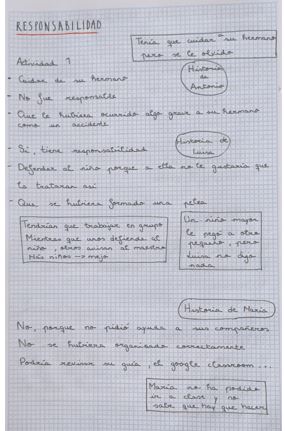 RESPONSABILIDAD
Tenía que cuidar a su hermano
pero se le olvidó
Actividad 1
Historia
de
Antonio
- Cuidar de su hermano
- No fue responsable
- Que le hubiera ocurrido algo grave a su hermano
como un accidente
Historia de
Luisa
- Sí, tiene responsabilidad
- Defender al niño porque a ella no le gustaría que
la trataran así
- Que se hubiera formado una pelea
Tendrían que trabajar en grupo
Mientras que unos defiende al
niño, otros avisan al maestro
Más niños → mejor
Un niño mayor
le pegó a otro
pequeño, pero
Luisa no dijo
nada
Historia de María
No, porque no pidió ayuda a sus compañeros
No se hubiera organizado correctamente
Podría revisar su guía, el google classroom...
María no ha podido
ir a clase y no
sabe que hay que hacer